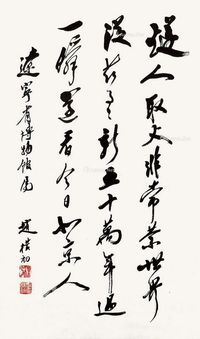 燧人取火非常業世界
從茲日日新五十萬年過
一瞬還看今日北京人
遼寧省博物館屬
趙樸初